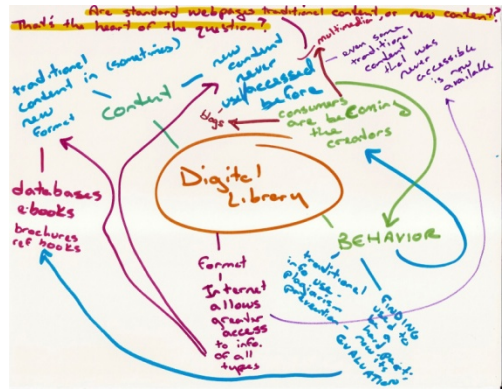 Are standard webpages traditional content or new content?
That's the heart of the question?
traditional
content in (sometimes)
new
format
content
new
content
never
accessed
before
multimedia
blogs
- even some
traditional
content
that was
never
accessible
is now
available
consumers
are becoming
the
creators
Digital
Library
databases
e-books
brochures
ref books
format
Internet
allows
greater
access
to info.
of all
types
BEHAVIOR
traditional
info use -
plagiarism
prevention -
FINDING
used to
be
hard
now it's
EVALUATION